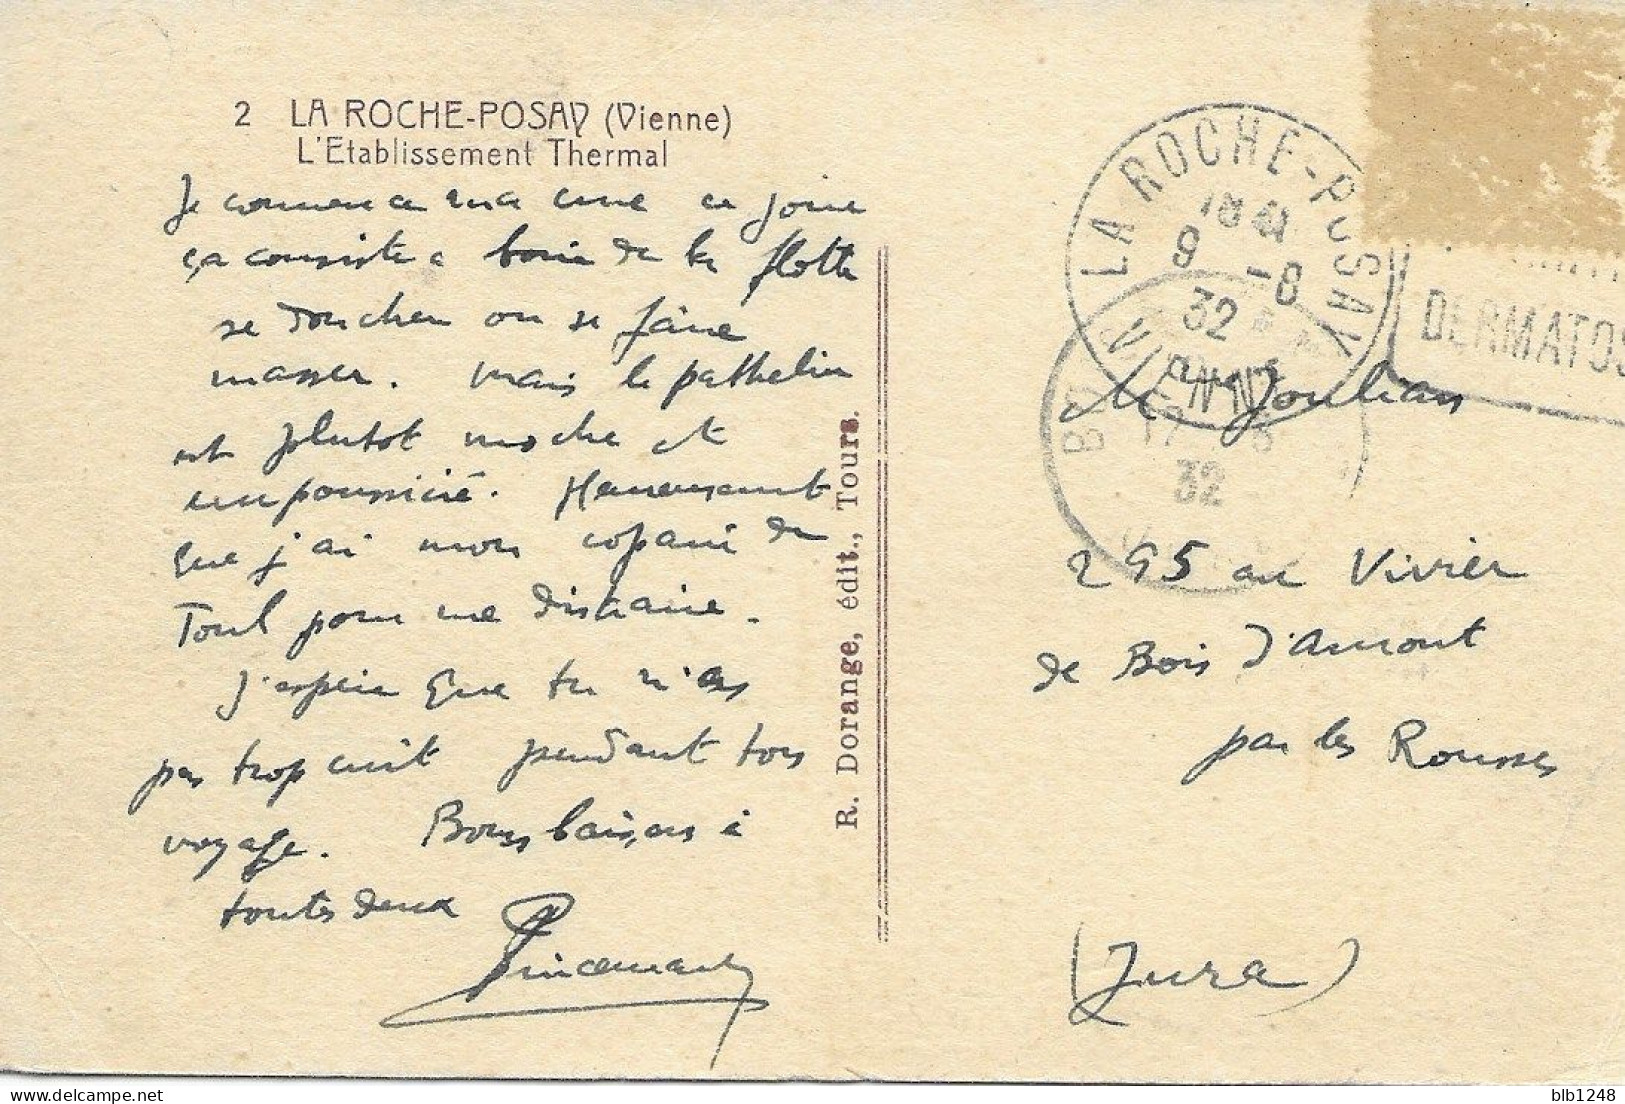 2 LA ROCHE-POSAY (Vienne)
L'Etablissement Thermal
Je commence ma cure ce jour
ça consiste a boire de la flotte
se doucher ou se faire
masser. Mais le pathelin
est plutot moche et
un poussiéré. Heureusement
que j'ai mon copain de
Toul pour me distraire.
J'espère que tu n'as
pas trop cuit pendant ton
voyage. Bons baisers à
toutes deux
R. Dorange, édit., Tours.
LA ROCHE-POSAY
VIENNE
9 -8
32
DERMATOS
32
Jouhan
295 au Vivier
de Bois d'Amont
par les Rousses
(Jura)
blb1248